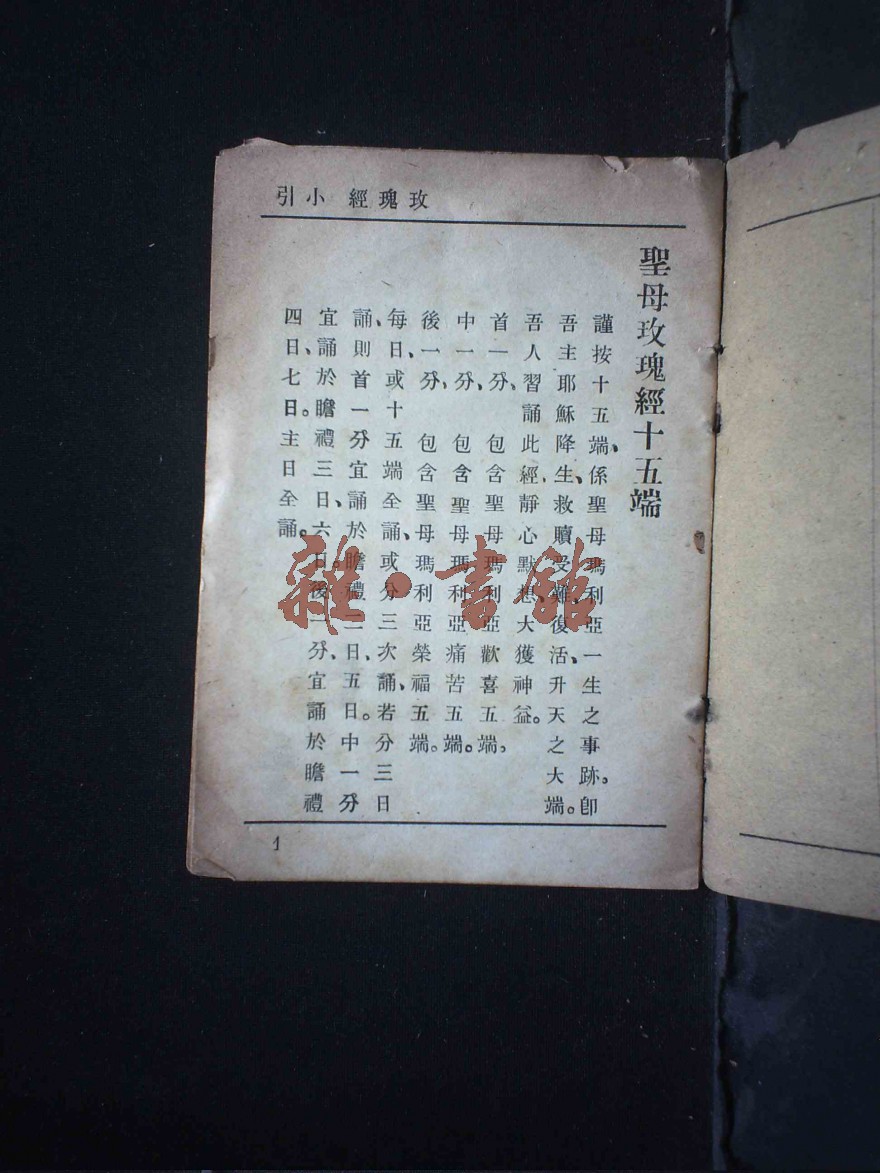 玫瑰經 小引
聖母玫瑰經十五端
謹按十五端、係聖母瑪利亞一生之事跡。卽
吾主耶穌降生、救贖受難、復活、升天之大端。
吾人習誦此經、靜心默想、大獲神益。
首一分、 包含聖母瑪利亞歡喜五端。
中一分、 包含聖母瑪利亞痛苦五端。
後一分、 包含聖母瑪利亞榮福五端。
每日、或十五端全誦、或分三次誦、若分三日
誦、則首一分宜誦於瞻禮二日、五日。中一分
宜誦於瞻禮三日、六日。後一分、宜誦於瞻禮
四日、七日。主日全誦。
1
雜·書館